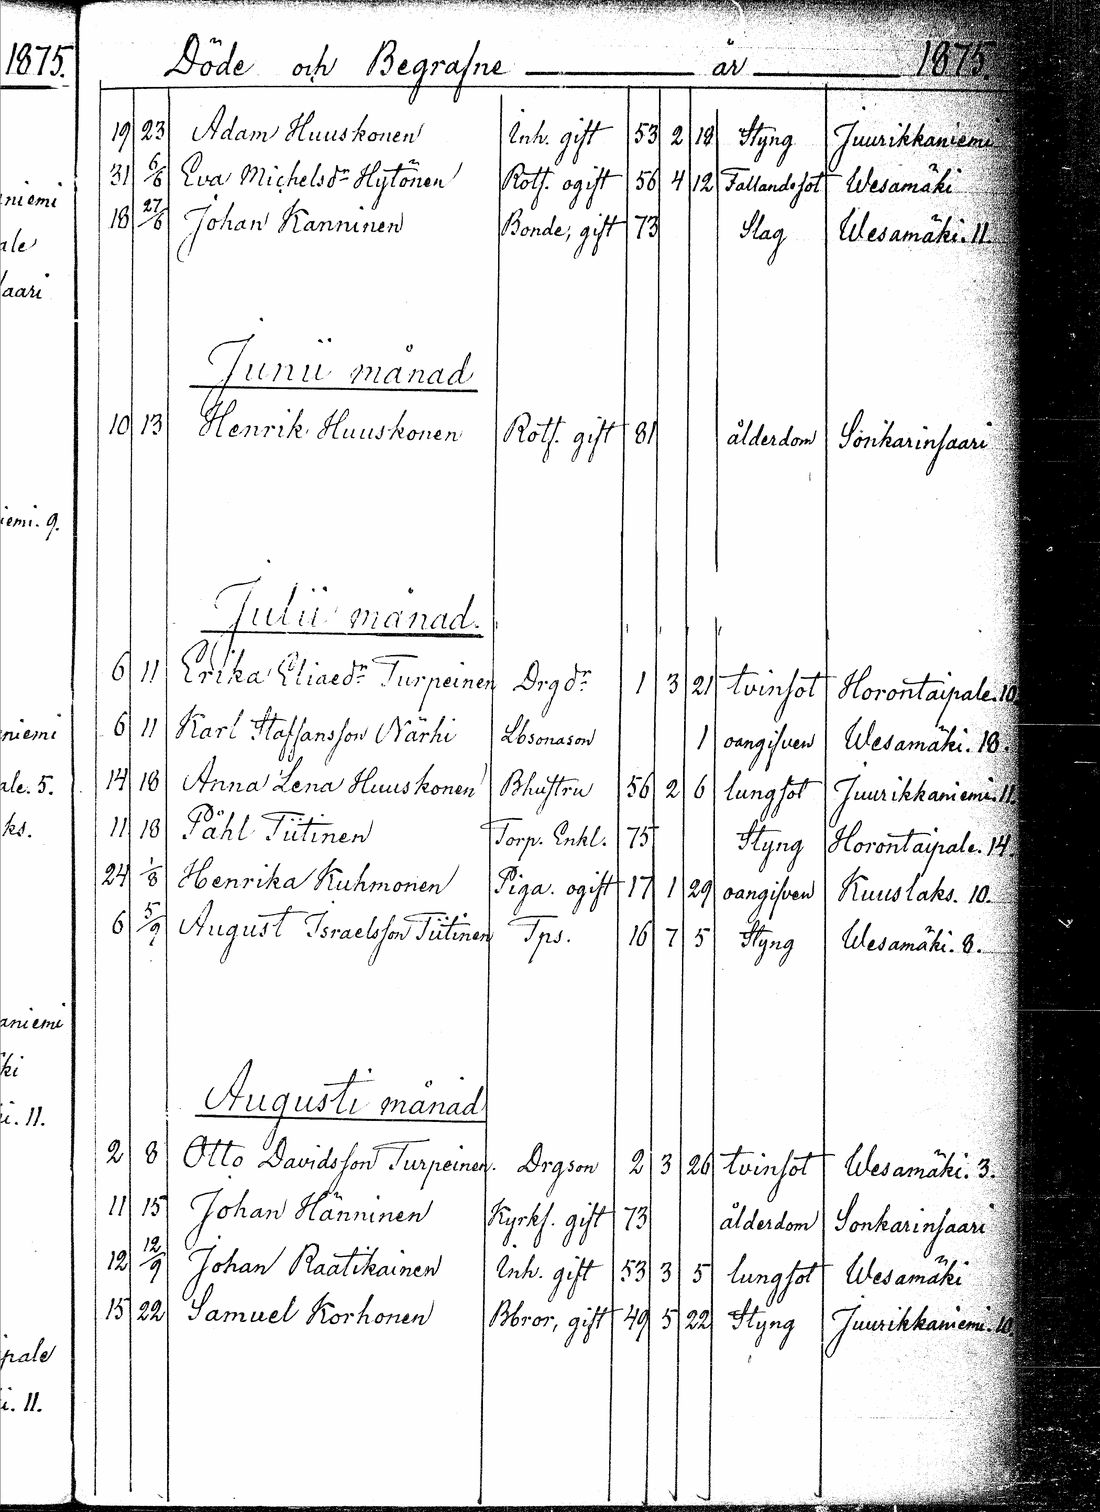 1875.
Döde och Begrafne år 1875.
19 23 Adam Huuskonen Inh. gift 53 2 18 Styng Juurikkaniemi
31 6/6 Eva Michelsdr Hytönen Rotf. ogift 56 4 12 Fallandesot Wesamäki
18 27/6 Johan Kanninen Bonde, gift 73 Slag Wesamäki. 11.
Junii månad
10 13 Henrik Huuskonen Rotf. gift 81 ålderdom Sonkarinsaari
Julii månad.
6 11 Erika Eliaedr Turpeinen Drgdr 1 3 21 tvinsot Horontaipale. 10
6 11 Karl Staffansson Närhi Lbsonason 1 oangifven Wesamäki. 18.
14 18 Anna Lena Huuskonen Bhustru 56 2 6 lungsot Juurikkaniemi. 11.
11 18 Påhl Tiitinen Torp. Enkl. 75 Styng Horontaipale. 14.
24 1/8 Henrika Kuhmonen Piga. ogift 17 1 29 oangifven Kuuslaks. 10.
6 5/9 August Israelsson Tiitinen Tps. 16 7 5 Styng Wesamäki. 8.
Augusti månad
2 8 Otto Davidsson Turpeinen. Drgson 2 3 26 tvinsot Wesamäki. 3.
11 15 Johan Hänninen Kyrkf. gift 73 ålderdom Sonkarinsaari
12 12/9 Johan Raatikainen Inh. gift 53 3 5 lungsot Wesamäki
15 22 Samuel Korhonen Bbror, gift 49 5 22 Styng Juurikkaniemi. 10.
niemi
ale
saari
iemi. 9.
niemi
ale. 5.
ks.
aniemi
ki
i. 11.
pale
i. 11.